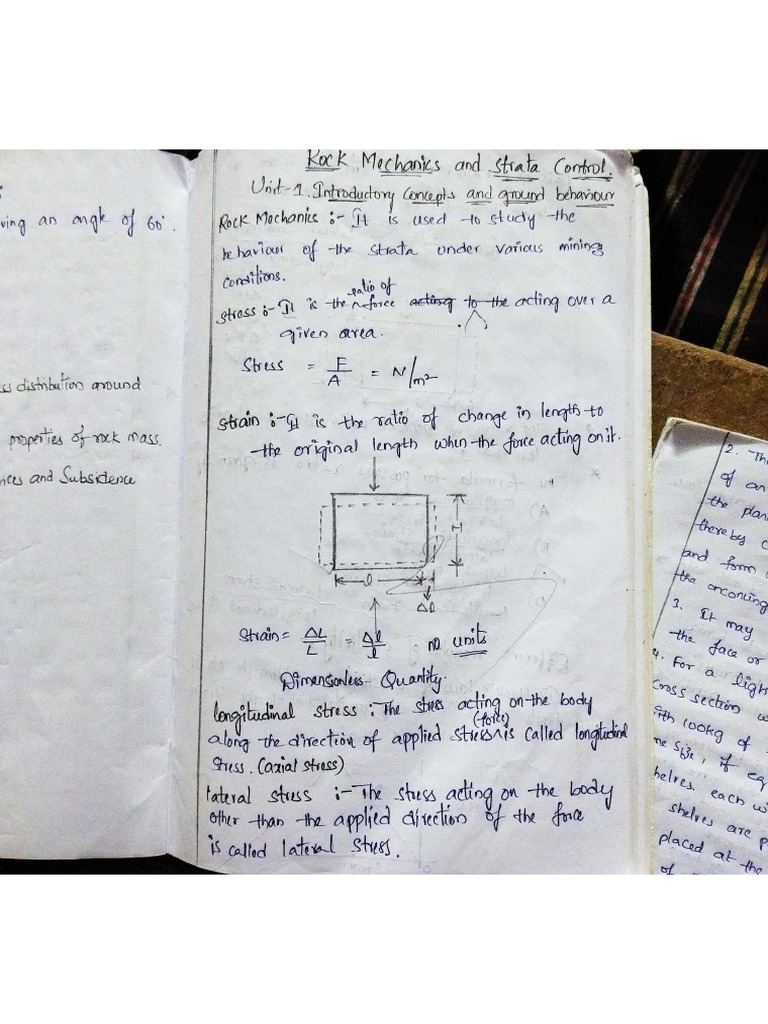 ving an angle of 60°.
ss distribution around
properties of rock mass.
nces and Subsidence
Rock Mechanics and Strata Control.
Unit-1. Introductory Concepts and ground behaviour
Rock Mechanics :- It is used to study the
behaviour of the strata under various mining
conditions.
ratio of
stress :- It is the force acting to the acting over a
given area.
Stress = F/A = N/m²
strain :- It is the ratio of change in length to
the original length when the force acting on it.
H
l
Δl
Strain = ΔL/L = Δl/l no units
Dimensionless Quantity.
longitudinal stress : The stress acting on the body
(force)
along the direction of applied stress is called longitudinal
stress. (axial stress)
lateral stress :- The stress acting on the body
other than the applied direction of the force
is called lateral stress.
2. Th
of an
the plan
thereby c
and form
the oncoming
3. It may
the face or
4. For a light
cross section w
with 100kg of
me size, if eq
helves each wi
shelves are p
placed at the
of